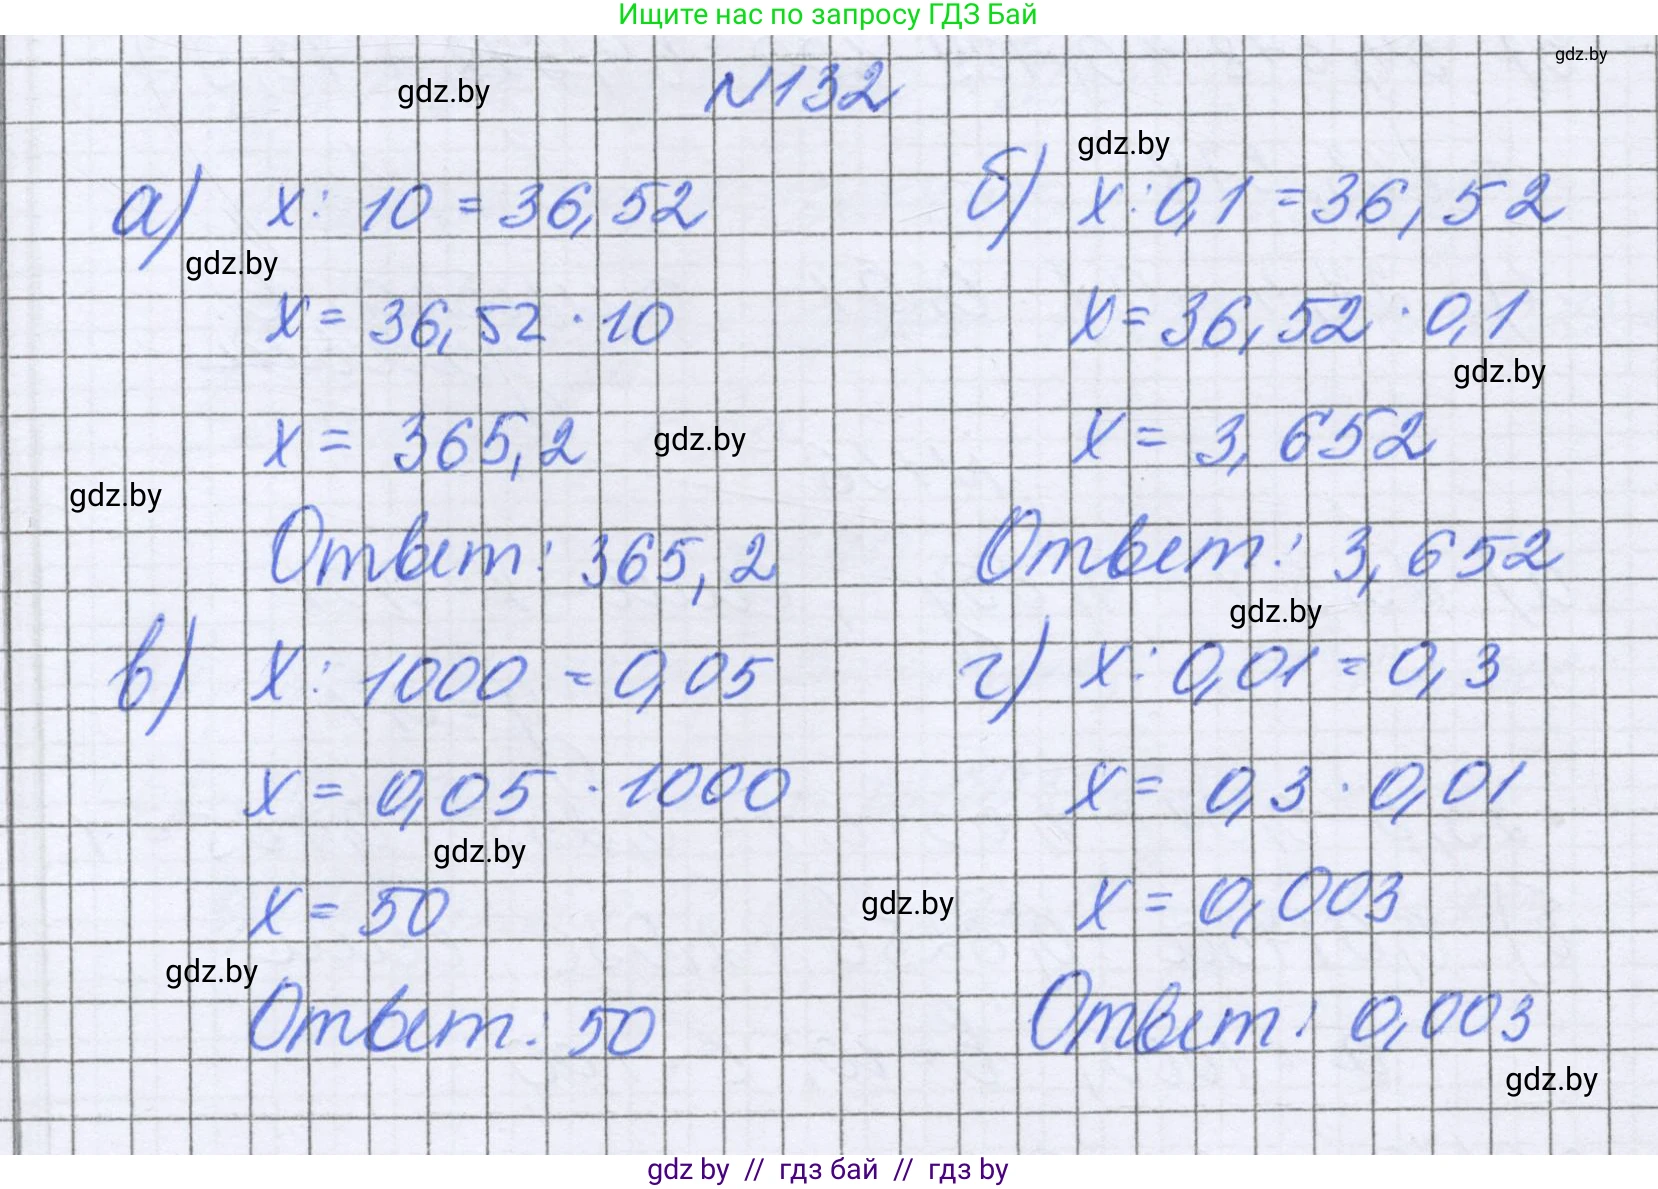 Ищите нас по запросу ГДЗ Бай
gdz.by
gdz.by
N132
gdz.by
а) x : 10 = 36,52
б) x : 0,1 = 36,52
gdz.by
x = 36,52 · 10
x = 36,52 · 0,1
gdz.by
x = 365,2
x = 3,652
gdz.by
gdz.by
Ответ: 365,2
Ответ: 3,652
gdz.by
в) x : 1000 = 0,05
г) x : 0,01 = 0,3
x = 0,05 · 1000
x = 0,3 · 0,01
gdz.by
x = 50
x = 0,003
gdz.by
gdz.by
Ответ: 50
Ответ: 0,003
gdz.by
gdz by // гдз бай // гдз by